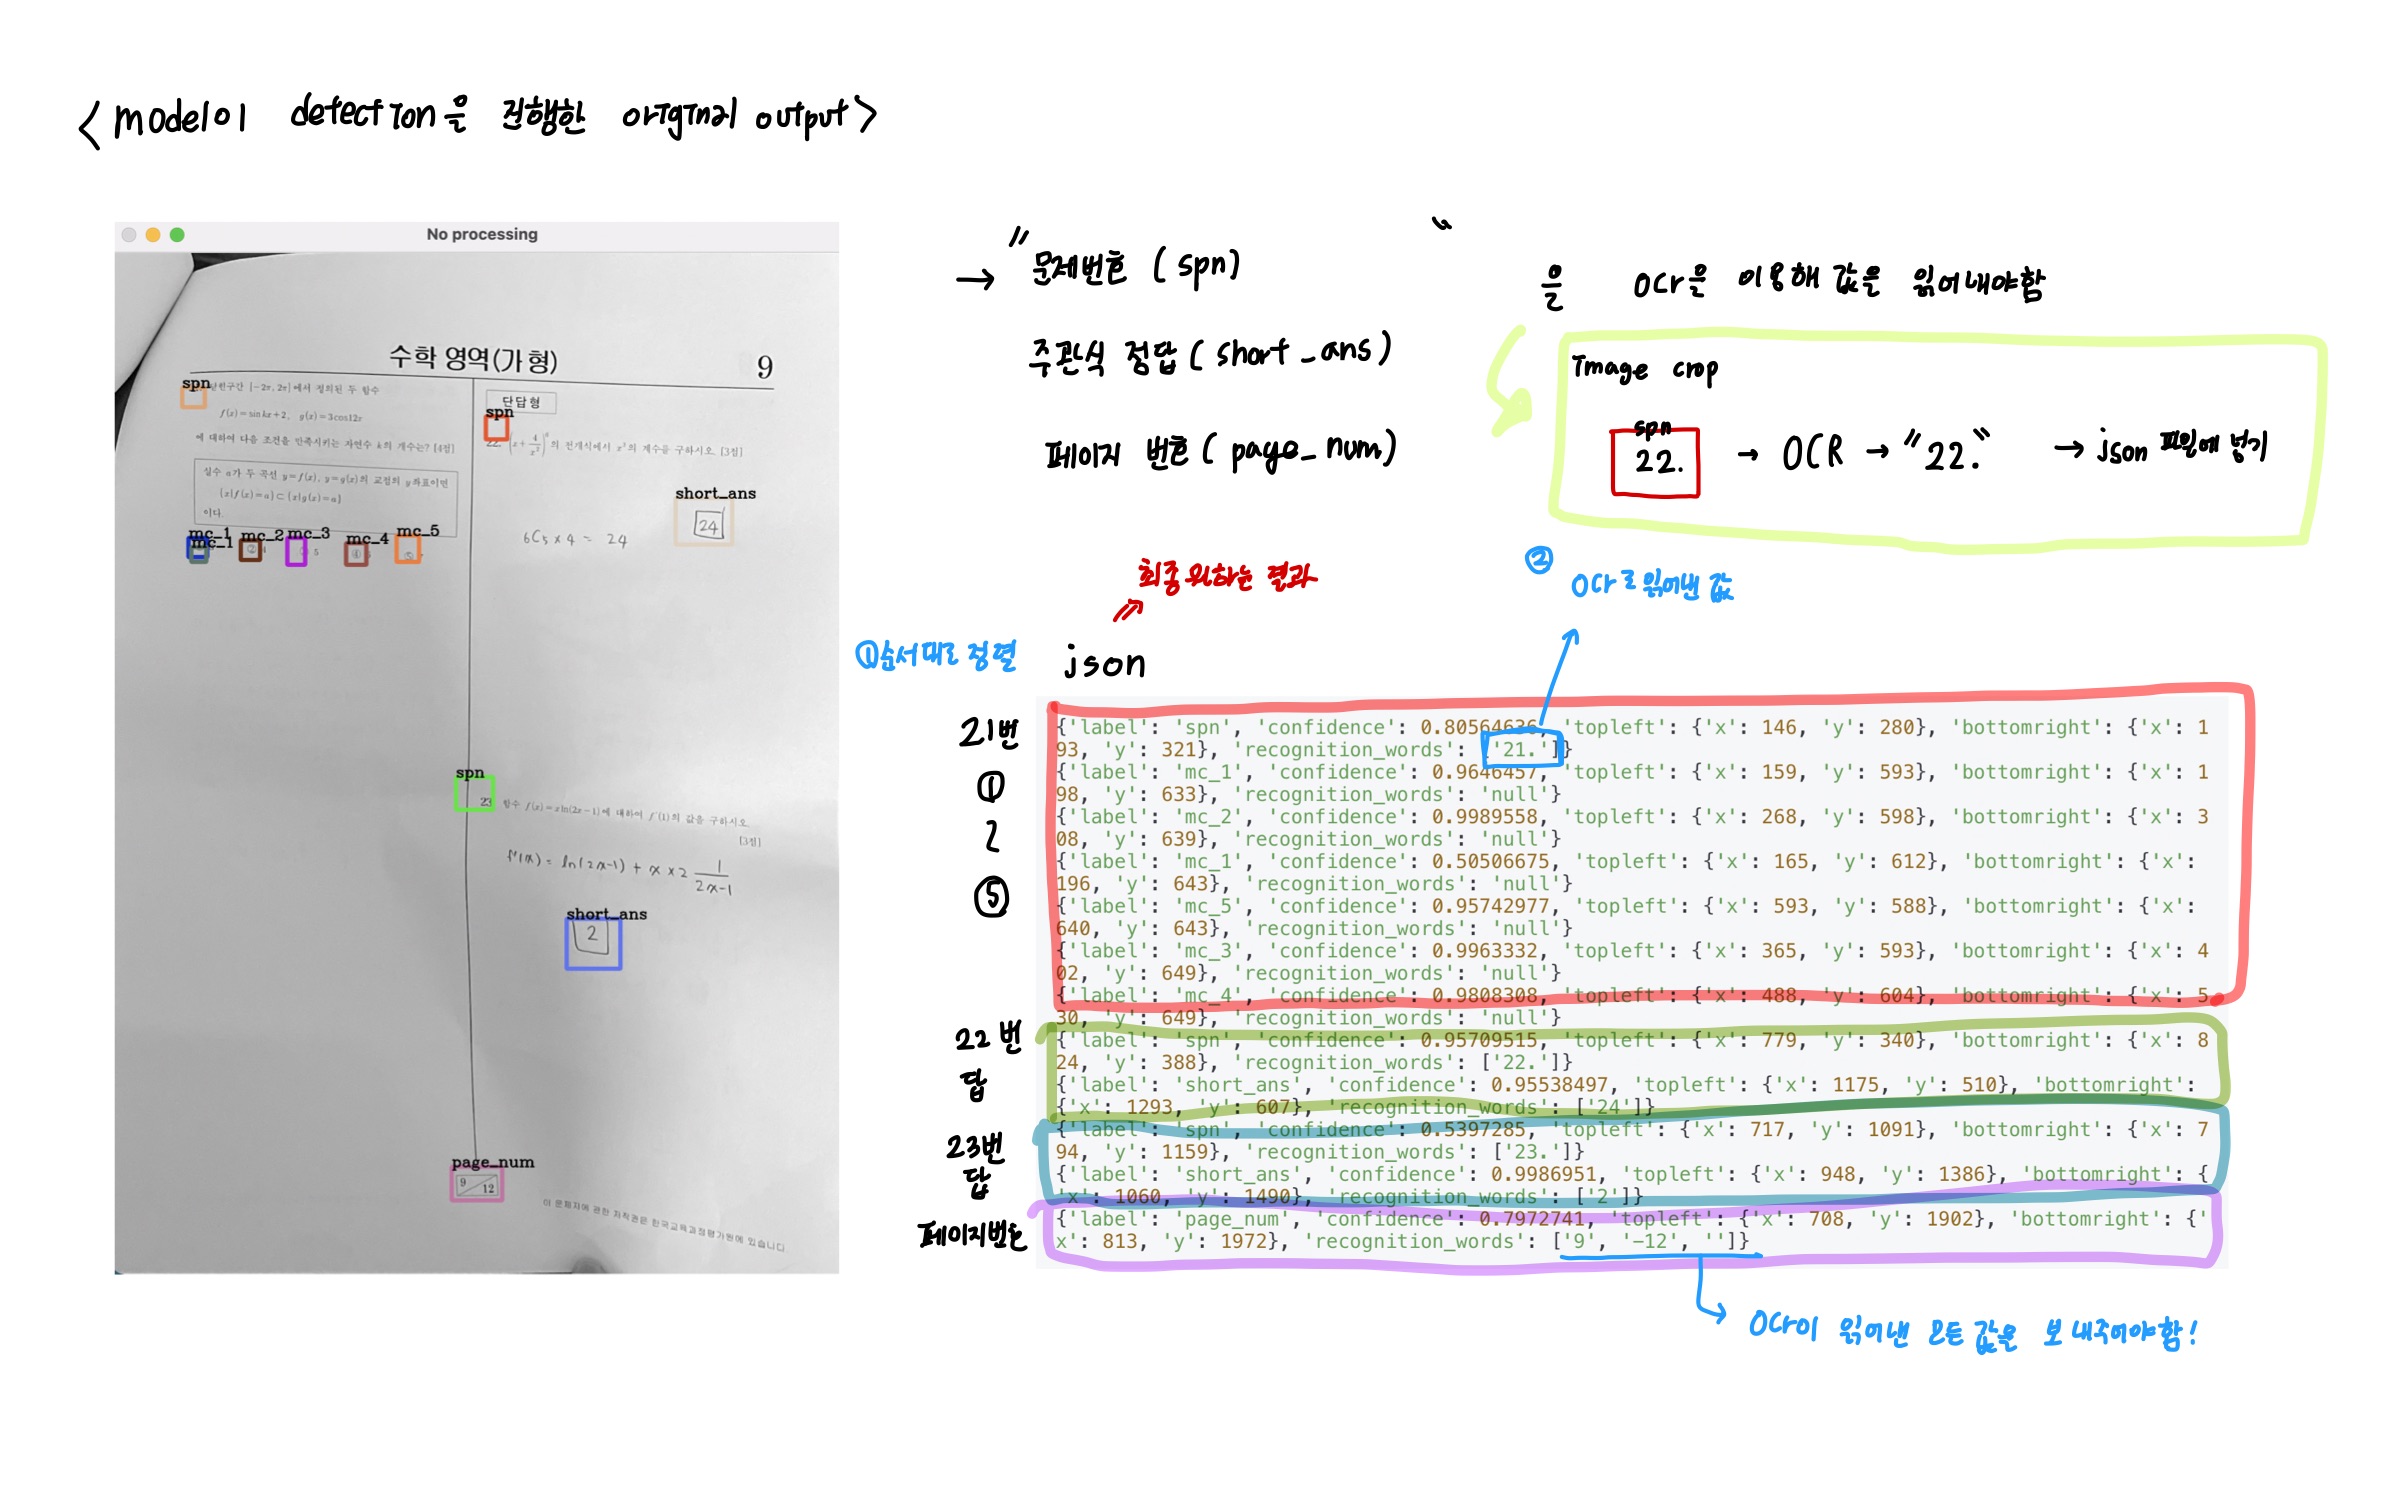 < model이 detection을 진행한 original output >
No processing
수학 영역(가형)
9
spn
닫힌구간 [-2π, 2π]에서 정의된 두 함수
f(x)=sin kx+2, g(x)=3cos12x
에 대하여 다음 조건을 만족시키는 자연수 k의 개수는? [4점]
실수 a가 두 곡선 y=f(x), y=g(x)의 교점의 y좌표이면
{x|f(x)=a}⊂{x|g(x)=a}
이다.
mc_1
mc_1
mc_2
② 4
mc_3
5
mc_4
④
mc_5
⑤
단답형
spn
22. (x+4/x²)⁶의 전개식에서 x³의 계수를 구하시오. [3점]
short_ans
24
6C5 x 4 = 24
spn
23 함수 f(x)=xln(2x-1)에 대하여 f'(1)의 값을 구하시오.
[3점]
f'(x) = ln(2x-1) + x x 2 1/2x-1
short_ans
2
page_num
9 12
이 문제지에 관한 저작권은 한국교육과정평가원에 있습니다.
→ "문제번호 (spn)
주관식 정답 (short_ans)
페이지 번호 (page_num) "
을 ocr을 이용해 값을 읽어내야함
Image crop
spn
22. → OCR → "22." → json 파일에 넣기
최종 원하는 결과
② ocr로 읽어낸 값
① 순서대로 정렬
json
21번
①
2
⑤
{'label': 'spn', 'confidence': 0.80564636, 'topleft': {'x': 146, 'y': 280}, 'bottomright': {'x': 1
93, 'y': 321}, 'recognition_words': ['21.']}
{'label': 'mc_1', 'confidence': 0.9646457, 'topleft': {'x': 159, 'y': 593}, 'bottomright': {'x': 1
98, 'y': 633}, 'recognition_words': 'null'}
{'label': 'mc_2', 'confidence': 0.9989558, 'topleft': {'x': 268, 'y': 598}, 'bottomright': {'x': 3
08, 'y': 639}, 'recognition_words': 'null'}
{'label': 'mc_1', 'confidence': 0.50506675, 'topleft': {'x': 165, 'y': 612}, 'bottomright': {'x':
196, 'y': 643}, 'recognition_words': 'null'}
{'label': 'mc_5', 'confidence': 0.95742977, 'topleft': {'x': 593, 'y': 588}, 'bottomright': {'x':
640, 'y': 643}, 'recognition_words': 'null'}
{'label': 'mc_3', 'confidence': 0.9963332, 'topleft': {'x': 365, 'y': 593}, 'bottomright': {'x': 4
02, 'y': 649}, 'recognition_words': 'null'}
{'label': 'mc_4', 'confidence': 0.9808308, 'topleft': {'x': 488, 'y': 604}, 'bottomright': {'x': 5
30, 'y': 649}, 'recognition_words': 'null'}
22번
답
{'label': 'spn', 'confidence': 0.95709515, 'topleft': {'x': 779, 'y': 340}, 'bottomright': {'x': 8
24, 'y': 388}, 'recognition_words': ['22.']}
{'label': 'short_ans', 'confidence': 0.95538497, 'topleft': {'x': 1175, 'y': 510}, 'bottomright':
{'x': 1293, 'y': 607}, 'recognition_words': ['24']}
23번
답
{'label': 'spn', 'confidence': 0.5397285, 'topleft': {'x': 717, 'y': 1091}, 'bottomright': {'x': 7
94, 'y': 1159}, 'recognition_words': ['23.']}
{'label': 'short_ans', 'confidence': 0.9986951, 'topleft': {'x': 948, 'y': 1386}, 'bottomright': {
'x': 1060, 'y': 1490}, 'recognition_words': ['2']}
페이지번호
{'label': 'page_num', 'confidence': 0.7972741, 'topleft': {'x': 708, 'y': 1902}, 'bottomright': {'
x': 813, 'y': 1972}, 'recognition_words': ['9', '-12', '']}
ocr이 읽어낸 모든 값을 보내주어야함!